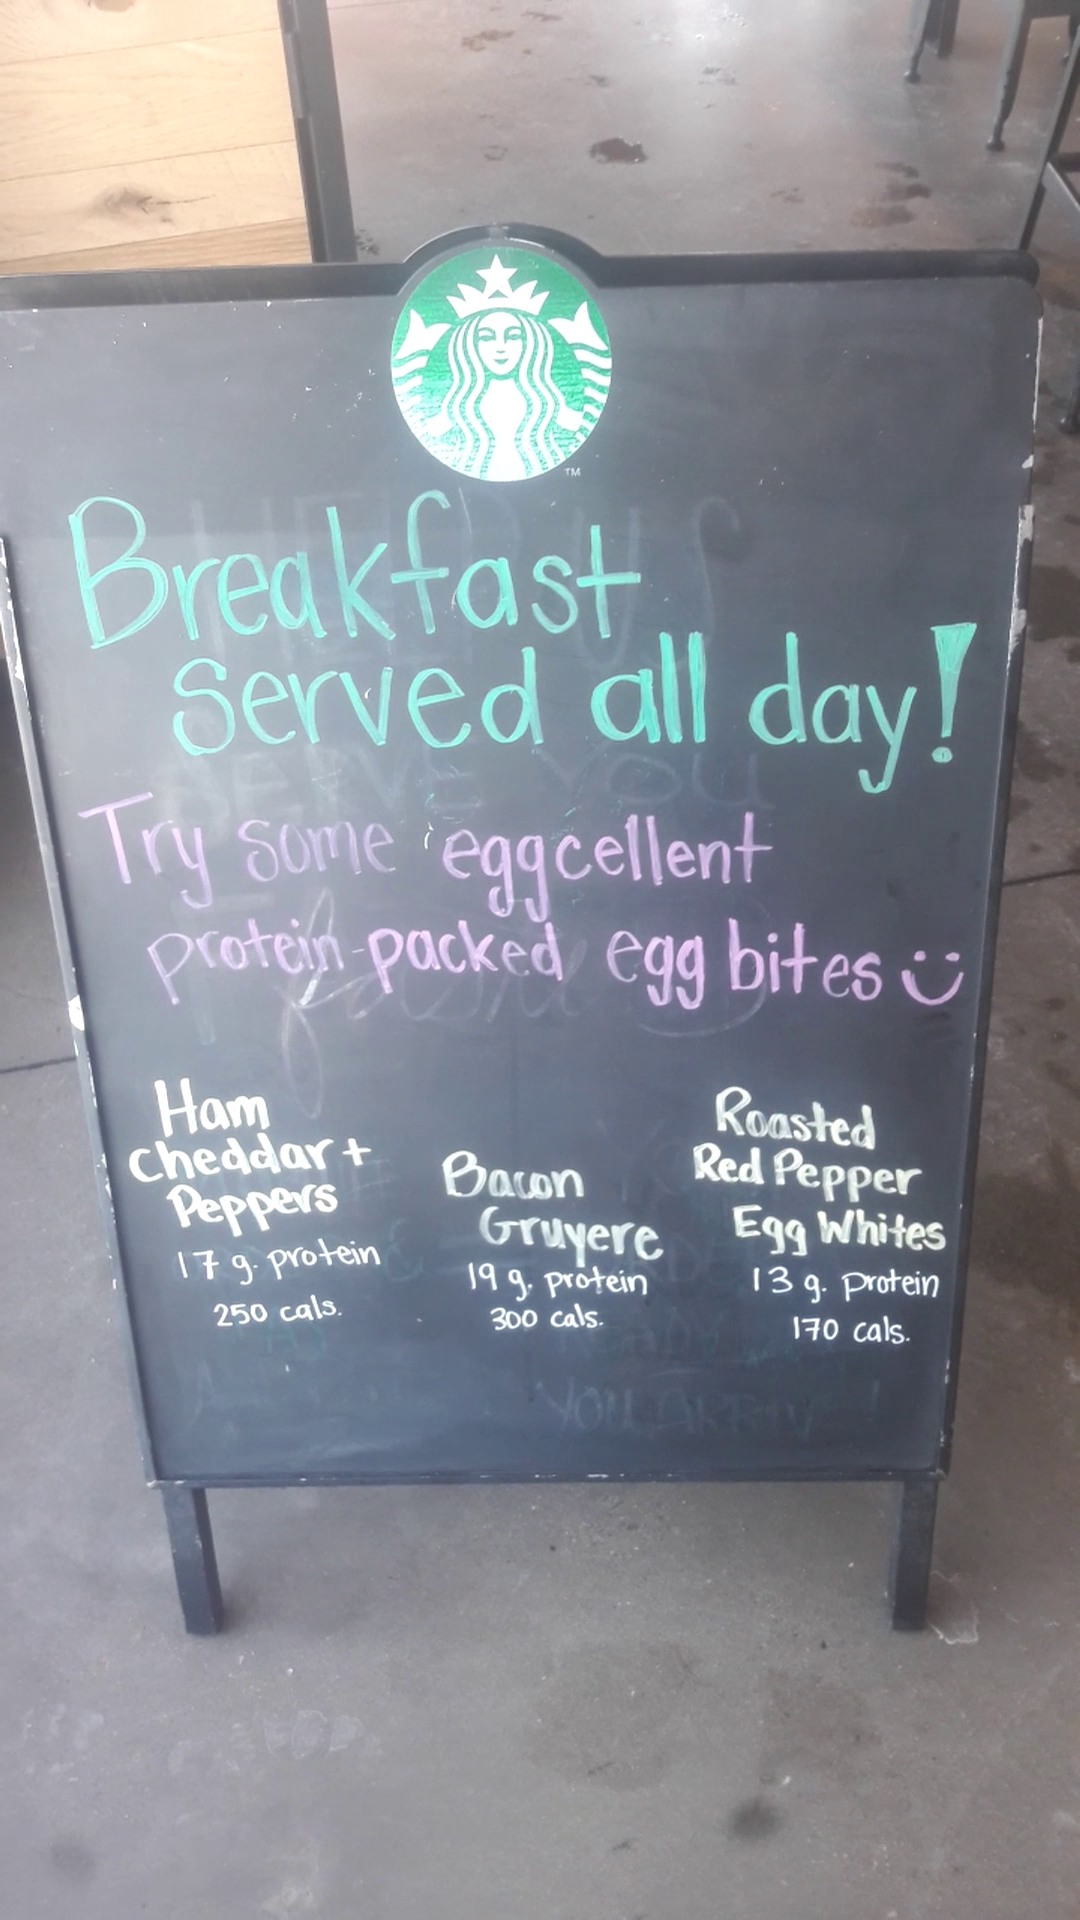 TM
Breakfast
served all day!
Try some eggcellent
protein-packed egg bites
Ham
Cheddar +
Peppers
17 g. protein
250 cals.
Bacon
Gruyere
19 g. protein
300 cals.
Roasted
Red Pepper
Egg Whites
13 g. protein
170 cals.